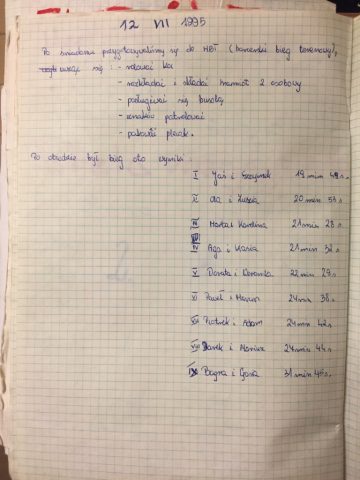 12 VII 1995
Po śniadaniu przygotowywaliśmy się do HBT (harcerski bieg terenowy),
się i: - 
- rozkładać i składać namiot 2 osobowy
- posługiwać się busolą
- znaków patrolowań
- plecak.
Po obiedzie był bieg oto wyniki:
I Jaś i 19 min 48 s.
II Ola i Zuzia 20 min 53 s.
III Marta i Karolina 21 min 28 s.
IV Aga i Kasia 21 min 32 s.
V Dorota i Weronika 22 min 29 s.
VI Paweł i 24 min 38 s.
VII Piotrek i Adam 24 min 42 s.
VIII Darek i Mariusz 24 min 44 s.
IX i Gosia 31 min 45 s.